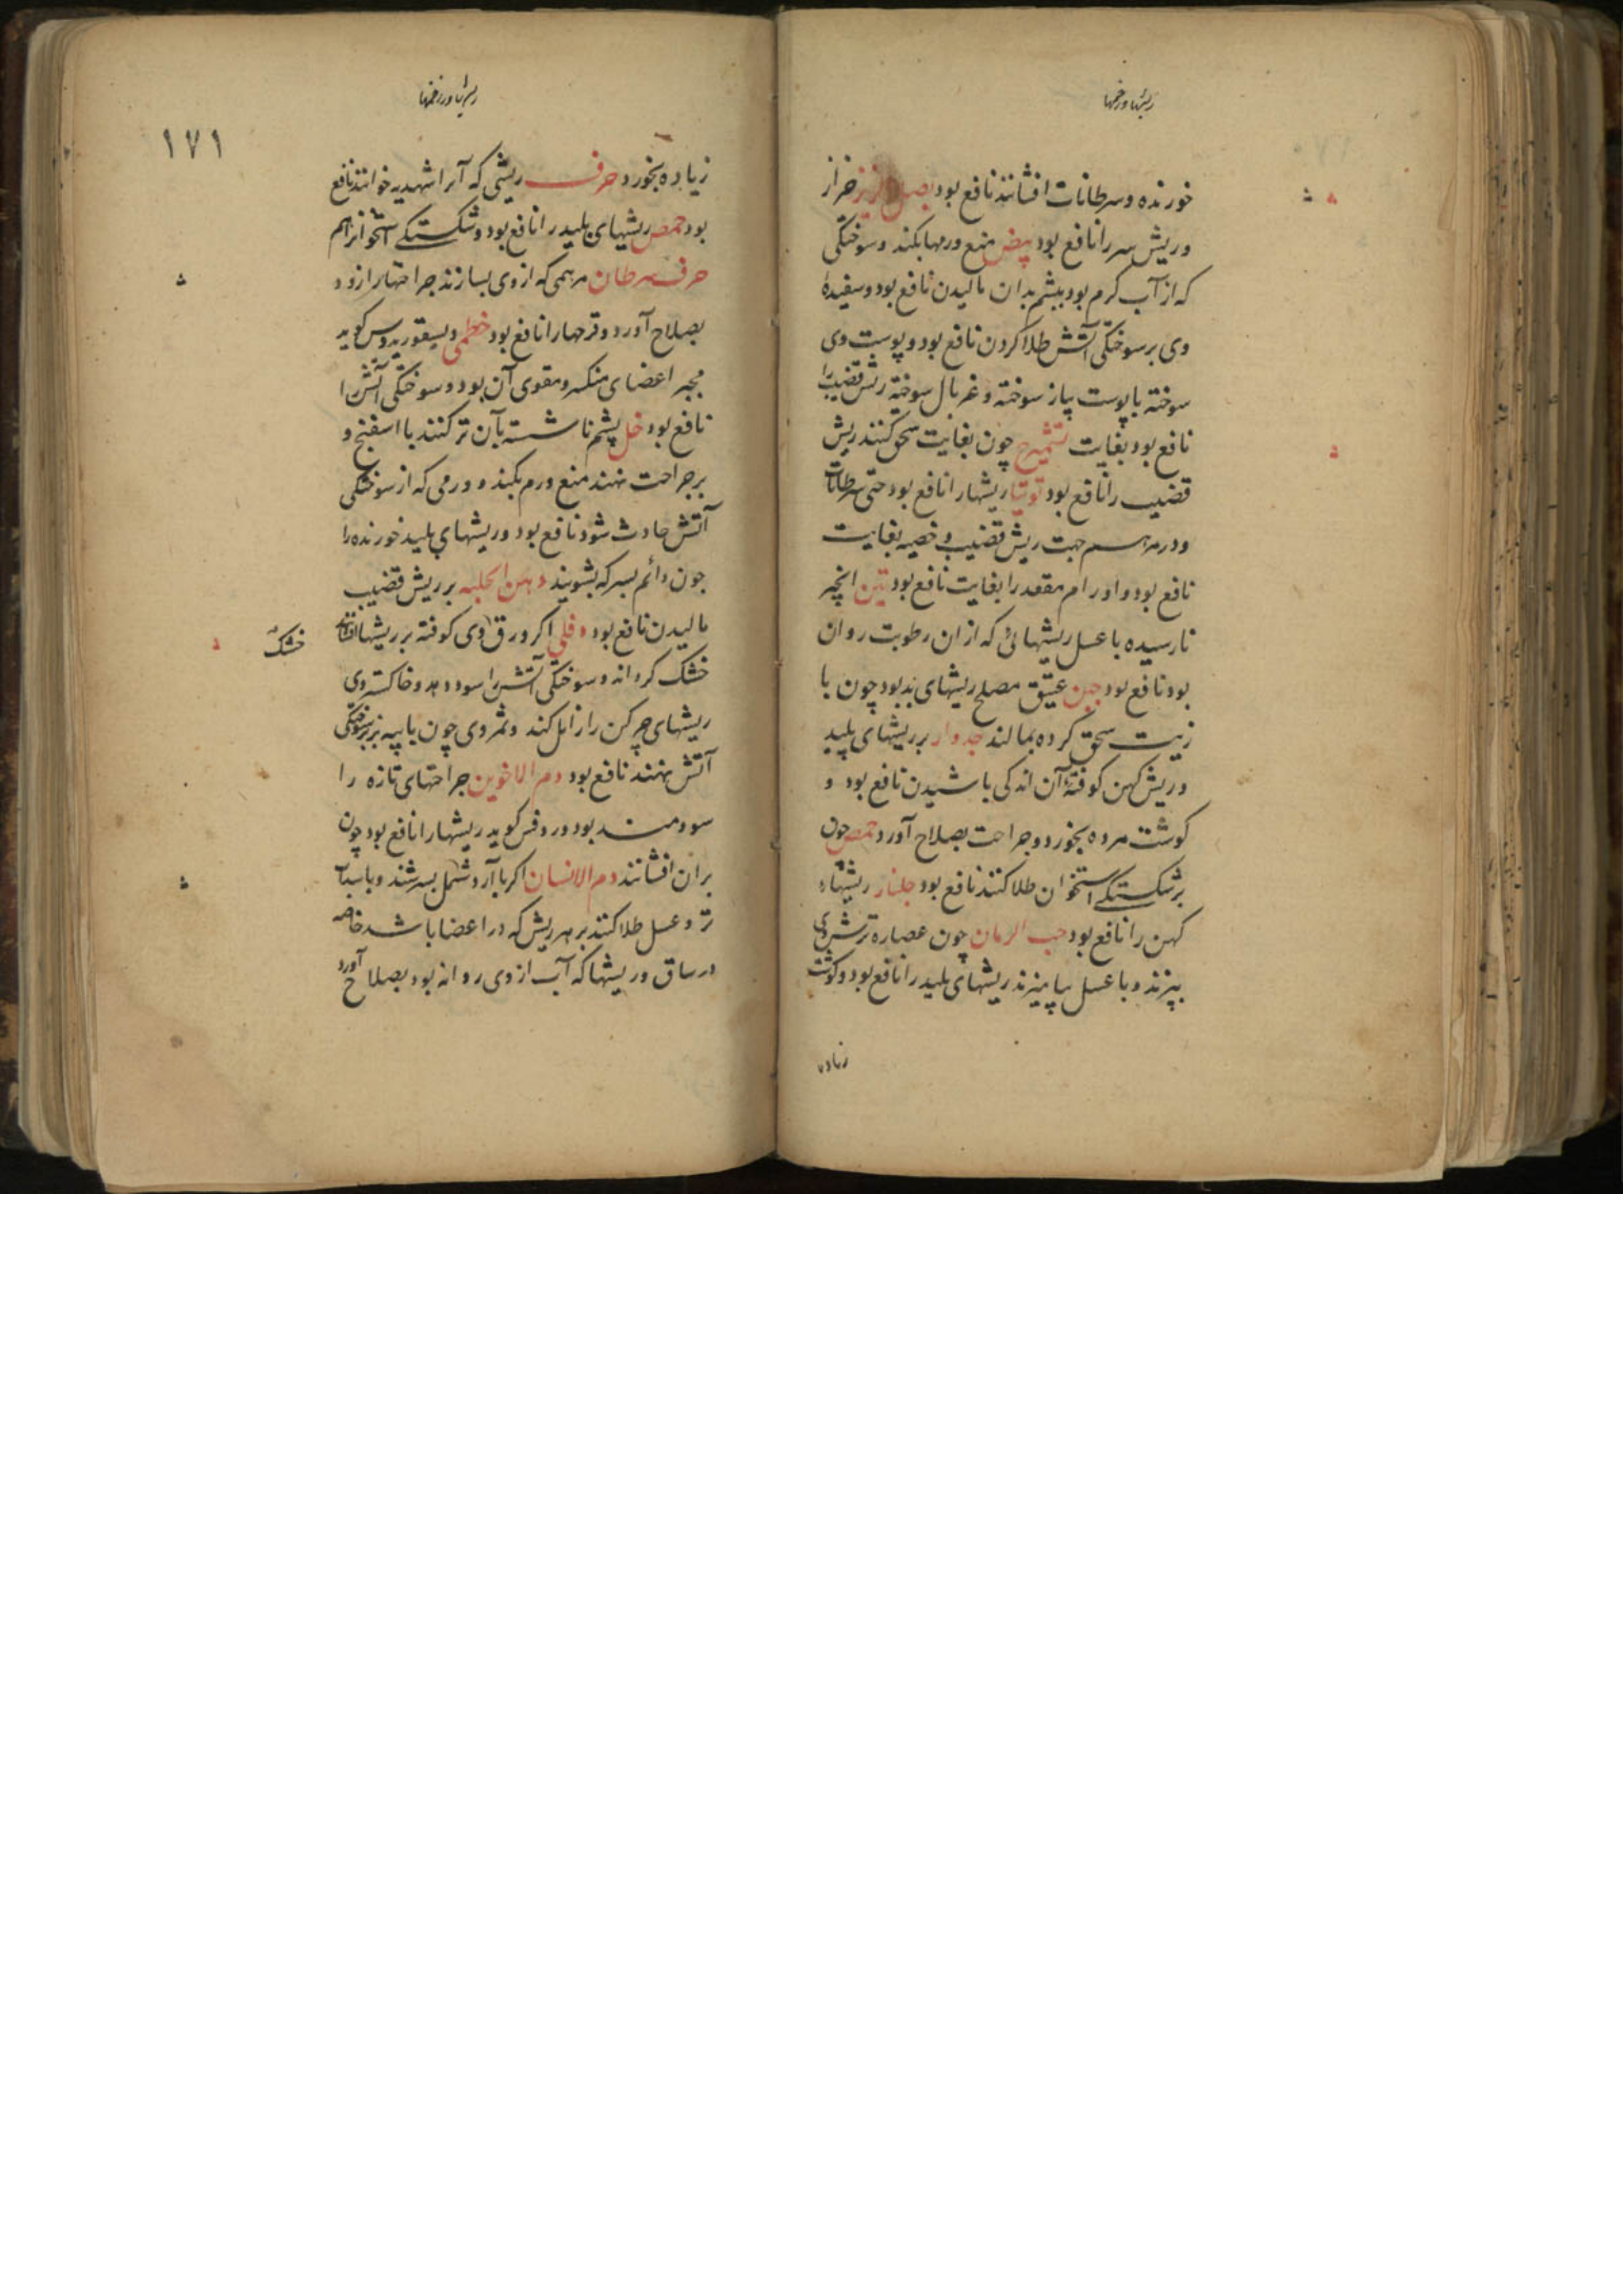 ریشها و زخمها
خورنده و سرطانات افشانند نافع بود بصل حزاز
و ریش سر را نافع بود بیض منع ورمها بکند و سوختکی
که از آب کرم بود بپشم بدان مالیدن نافع بود و سفیدهٔ
وی بر سوختکی آتش طلا کردن نافع بود و پوست وی
سوخته با پوست پیاز سوخته و غربال سوخته ریش قضیب را
نافع بود بغایت چون بغایت سحق کنند ریش
قضیب را نافع بود توتیا ریشها را نافع بود حتی سرطانات
و در مرهم جهت ریش قضیب و خصیه بغایت
نافع بود و اورام مقعد را بغایت نافع بود تین انجیر
نارسیده با عسل ریشهائی که از ان رطوبت روان
بود نافع بود جبن عتیق مصلح ریشهای بد بود چون با
زیت سحق کرده بمالند جدوار بر ریشهای پلید
و ریش کهن کوفتهٔ آن اندکی پاشیدن نافع بود و
کوشت مرده بخورد و جراحت بصلاح آورد حمص چون
بر شکستکی استخوان طلا کنند نافع بود جلنار ریشهاء
کهن را نافع بود حب الرمان چون عصاره ترش وی
بپزند و با عسل بیامیزند ریشهای پلید را نافع بود و کوشت
زیاده
ریشها و زخمها
۱۷۱
زیاده بخورد حرف ریشی که آنرا شهدیه خوانند نافع
بود حمص ریشهای پلید را نافع بود و شکستکی استخوانرا هم
سرطان مرهمی که از وی بسازند جراحتها را زود
بصلاح آورد و قرحها را نافع بود خطمی دیسقوریدوس کوید
مجبر اعضای منکسر و مقوی آن بود و سوختکی آتش را
نافع بود خل پشم ناشسته بآن تر کنند یا اسفنج و
بر جراحت نهند منع ورم بکند و ورمی که از سوختکی
آتش حادث شود نافع بود و ریشهای پلید خورنده را
چون دائم بسرکه بشویند دهن الحلبه بر ریش قضیب
مالیدن نافع بود دفلی اکر ورق وی کوفته بر ریشها افشانند
خشک
خشک کرداند و سوختکی آتش را سود دهد و خاکستر وی
ریشهای چرکن را زایل کند و ثمر وی چون با پیه بز بر سوختکی
آتش نهند نافع بود دم الاخوین جراحتهای تازه را
سودمند بود و روفس کوید ریشها را نافع بود چون
بران افشانند دم الانسان اکر با آرد بسرشند و با
تر و عسل طلا کنند بر هر ریش که در اعضا باشد خاصه
در ساق و ریشها که آب از وی روانه بود بصلاح آورد